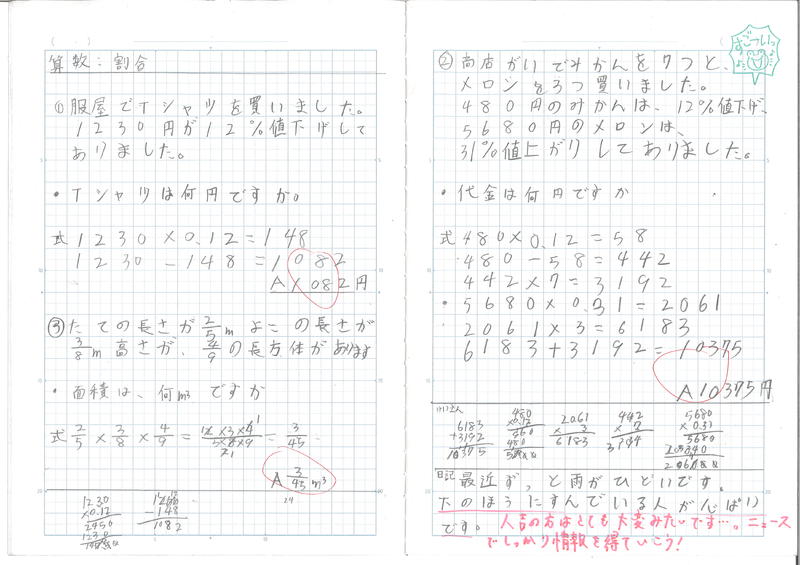 算数：割合
①服屋でTシャツを買いました。
1230円が12%値下げして
ありました。
・Tシャツは何円ですか。
式1230×0.12=148
1230-148=1082
A1082円
③たての長さが2/5m よこの長さが
3/8m 高さが、4/9の長方体があります
・面積は、何m³ですか
式 2/5×3/8×4/9= =3/45
A 3/45 m³
1230
×0.12
2450
1230
-148
1082
24
すごついっ
②商店がいでみかんを7つと、
メロンを3つ買いました。
480円のみかんは、12%値下げ、
5680円のメロンは、
31%値上がりしてありました。
・代金は何円ですか
式480×0.12=58
480-58=442
442×7=3192
・5680×0.31=2061
2061×3=6183
6183+3192=10375
A10375円
6183
+3192
10375
480
×0.12
2061
×3
6183
442
×7
5680
×0.31
5680
日記 最近ず,と雨がひどいです。
下のほうにすんでいる人が心ぱい
です。 人吉の方はとても大変みたいです…。ニュース
でしっかり情報を得ていこう!